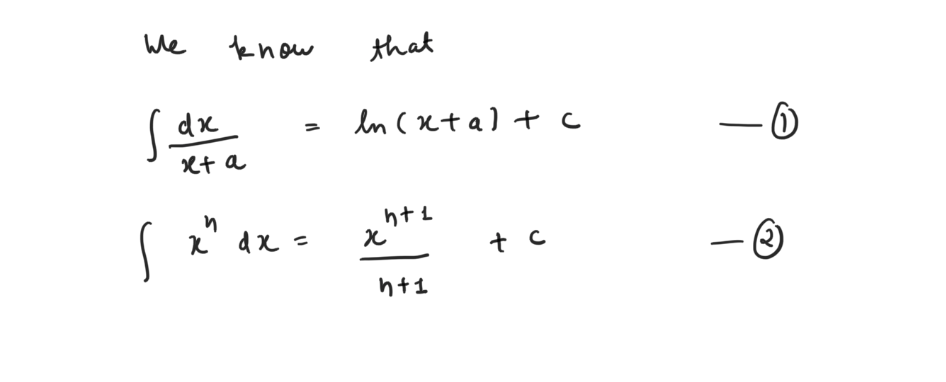 We know that
∫ dx/(x+a) = ln(x+a) + c —①
∫ xⁿ dx = xⁿ⁺¹/(n+1) + c —②